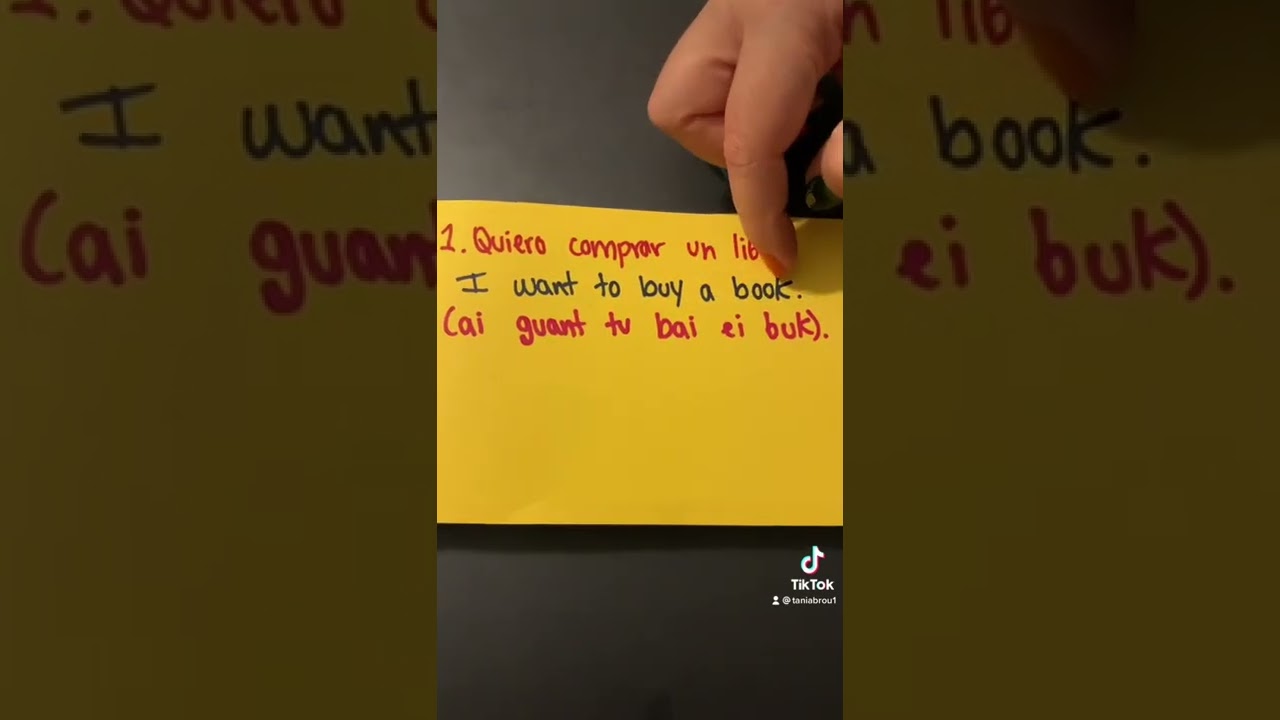 1. Quiero comprar un
I want to buy a book.
(ai guant tu bai ei buk).
TikTok
@taniabrou1